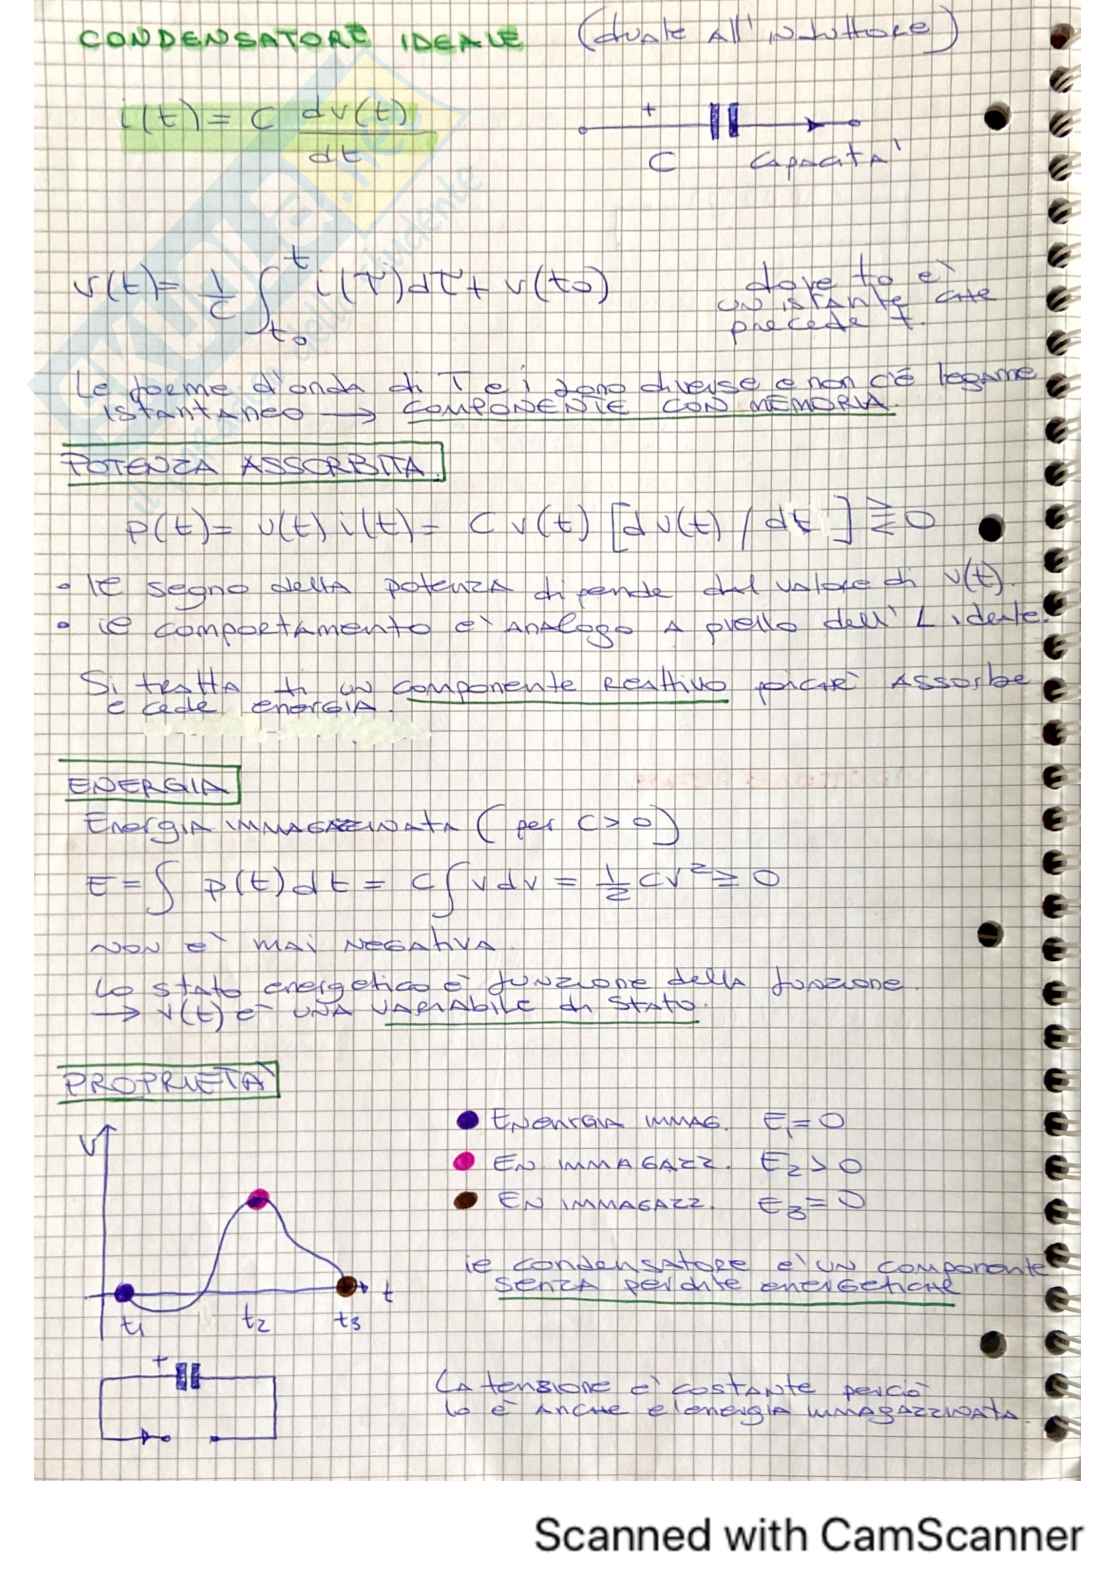 CONDENSATORE IDEALE (duale all'induttore)
i(t) = C dv(t)/dt
+
C Capacità
v(t) = 1/C ∫ t t₀ i(τ)dτ + v(t₀) dove t₀ è
un istante che
precede t.
Le forme d'onda di T e i sono diverse e non c'è legame
istantaneo → COMPONENTE CON MEMORIA.
POTENZA ASSORBITA
p(t) = v(t) i(t) = C v(t) [dv(t)/dt] ⋛ 0
• il segno della potenza dipende dal valore di v(t).
• il comportamento è analogo a quello dell' L ideale.
Si tratta di un componente reattivo poiché assorbe
e cede energia.
ENERGIA
Energia immagazzinata (per C>0)
E = ∫ p(t)dt = C∫vdv = 1/2 Cv² ≥ 0
non è mai negativa
Lo stato energetico è funzione della funzione
→ v(t) è una variabile di stato.
PROPRIETÀ
V
Energia immag. E₁ = 0
En immagazz. E₂ > 0
En immagazz. E₃ = 0
il condensatore è un componente
senza perdite energetiche
t
t₁ t₂ t₃
+
La tensione è costante perciò
lo è anche l'energia immagazzinata.
Scanned with CamScanner